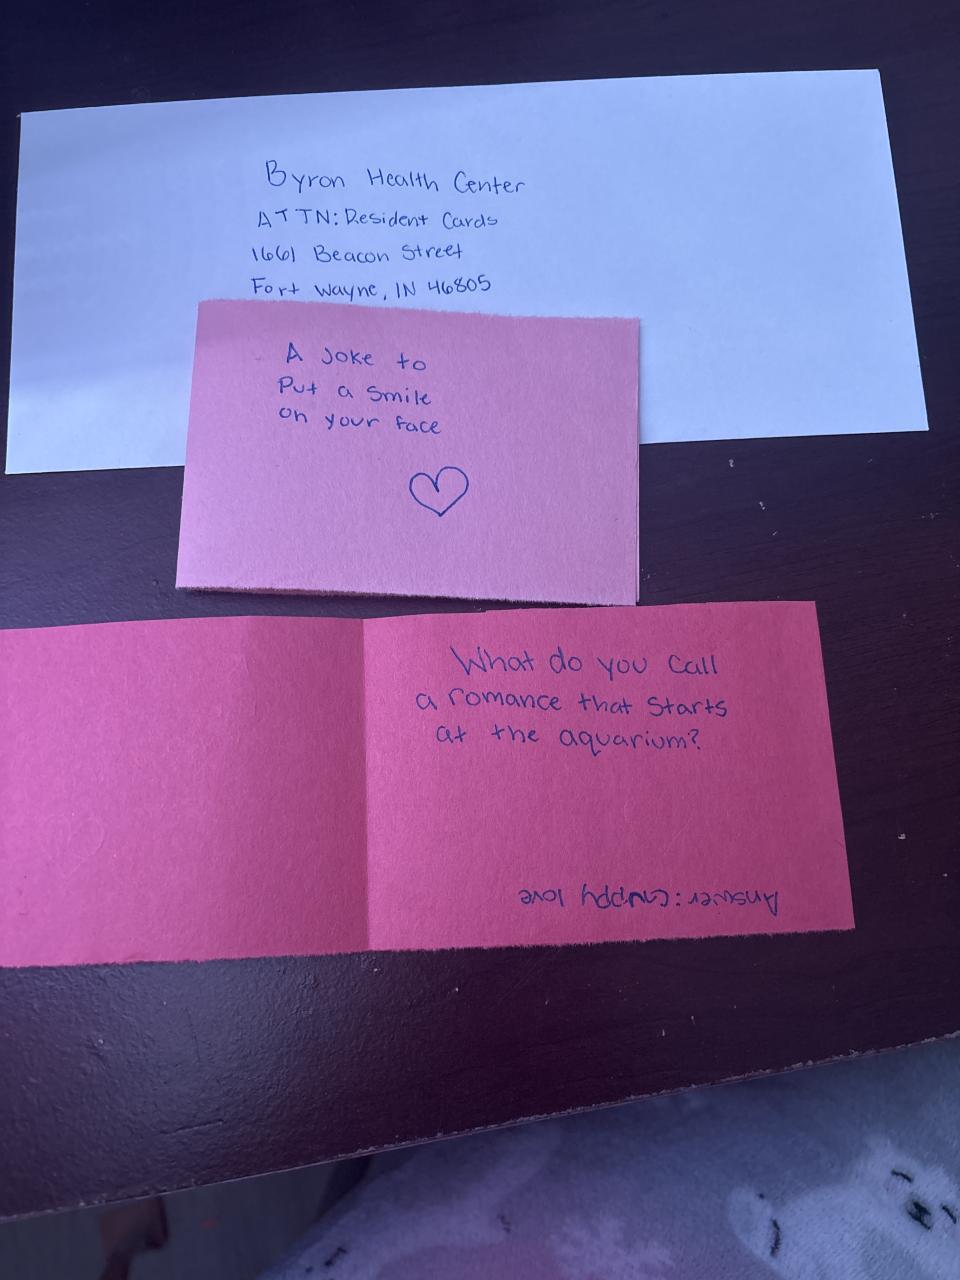 Byron Health Center
ATTN: Resident Cards
1661 Beacon Street
Fort Wayne, IN 46805
A Joke to
Put a Smile
on your face
What do you call
a romance that starts
at the aquarium?
Answer: Guppy love